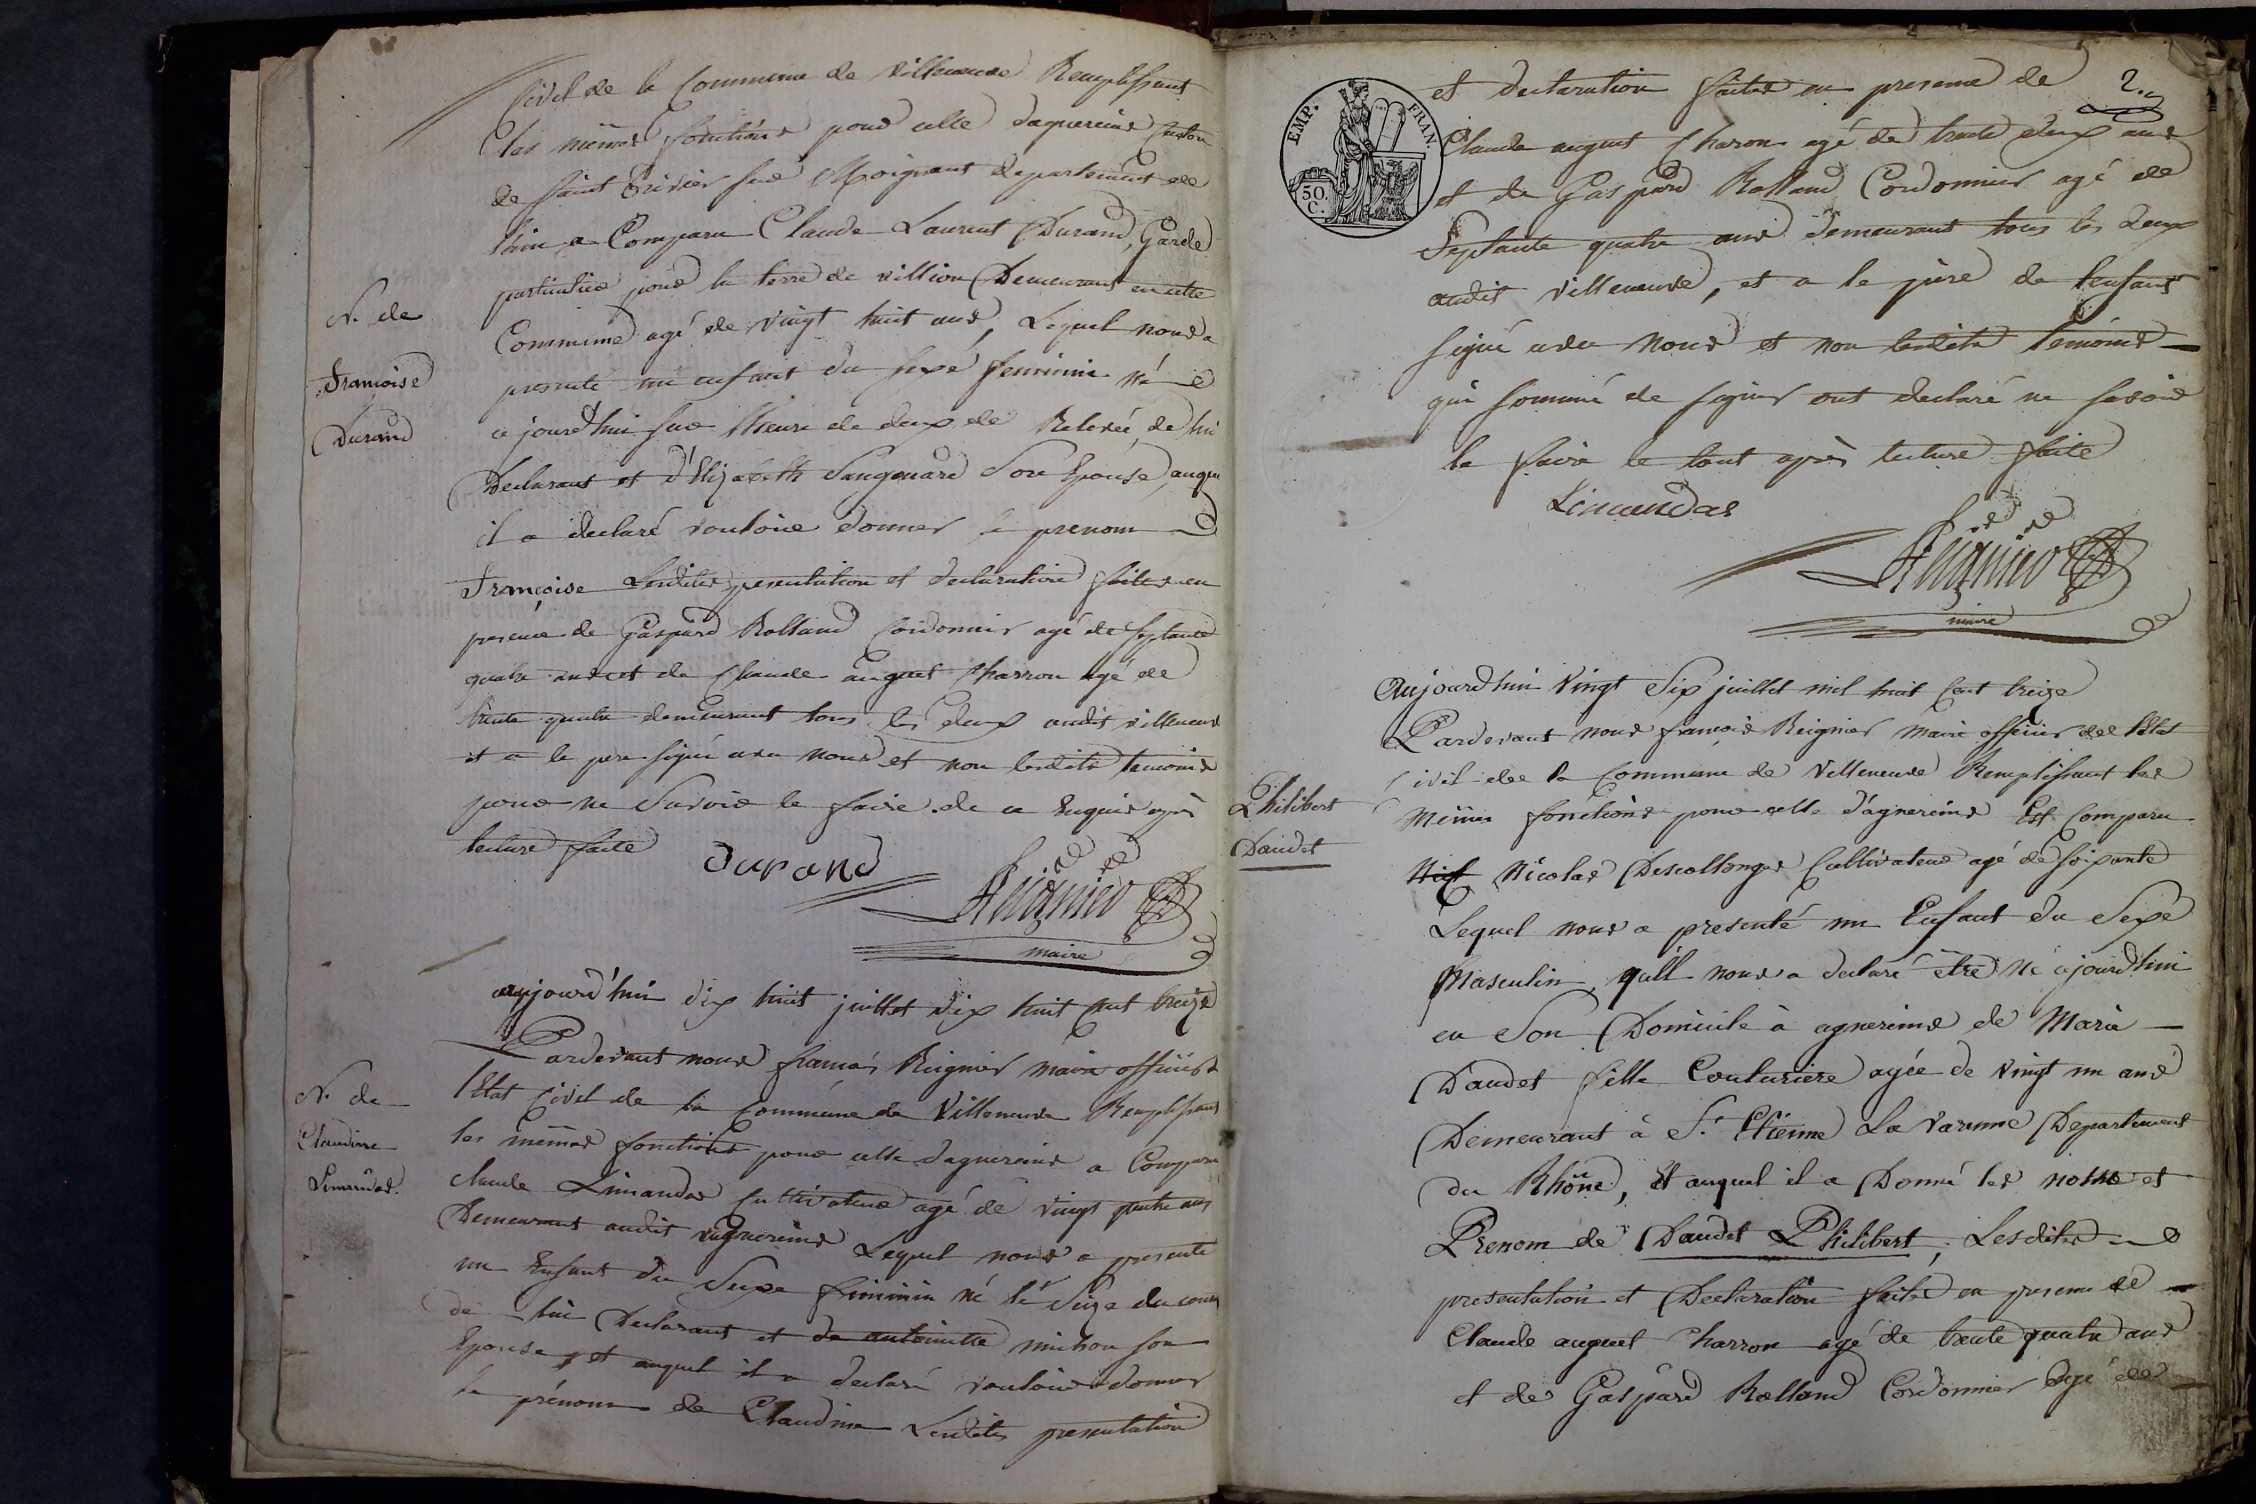 Civil de la Commune de Villeneuve Remplissant
les mêmes fonctions pour celle dagnereins Canton
de saint Trivier sur Moignant departement de
lain a Comparu Claude Laurent Durand, Garde
particulier pour la terre de villion Demeurant en cette
Commune agé de vingt huit ans, Lequel nous a
presenté un enfant du sexe feminin né
cejourd'hui sur lheure de deux de Relevée, de lui
Declarant et d'Elizabeth Sangouard Son Epouse, auquel
il a declaré vouloir donner le prenom
Françoise Lesdites presentation et declaration faites en
presence de Gaspard Rolland Cordonnier agé de septante
quatre ans et de Claude auguet Charron agé de
trente quatre demeurant tous les deux audit villeneuve
et a le pere signé avec nous et non lesdits temoins
pour ne Savoir le faire de ce Enquis après
lecture faite
Durand
Reignier
maire
N. de
Francoise
Durand
aujourd'hui dix huit juillet dix huit cent treize
Pardevant nous francois Reignier maire officier de
lEtat Civil de la Commune de Villeneuve Remplissant
les mêmes fonctions pour celle dagnereins a Comparu
claude Limandas Cultivateur agé de vingt quatre ans
Demeurant audit agnereins Lequel nous a presenté
un Enfant du Sexe feminin né le Seize du cour
de lui Declarant et de antoinette michon son
Epouse, et auquel il a declaré vouloir donner
le prénom de Claudine Lesdites presentation
N. de
Claudine
Limandas.
2.
EMP. FRAN.
50.
C.
et declaration faites en presence de
Claude auguet Charon agé de trente deux ans
et de Gaspard Rolland Cordonnier agé de
Septante quatre ans demeurant tous les deux
audit villeneuve, et a le père de lenfant
signé avec nous et non lesdits temoins
qui sommé de signer ont declaré ne savoir
le faire le tout après lecture faite
Limandas
Reignier
maire
Aujourdhui vingt Six juillet mil huit cent treize
Pardevant nous françois Reignier maire officier de lEtat
Civil de la Commune de Villeneuve Remplissant les
Mêmes fonctions pour celle d'agnereins Est Comparu
Nicolas Descollonges Cultivateur agé de soixante
Lequel nous a presenté un Enfant du Sexe
Masculin, qu'il nous a declaré être né cejourdhui
en Son Domicile à agnereins de Marie
Daudet fille Couturiere agée de vingt un ans
Demeurant à St. Etienne La varenne Departement
du Rhône, Et auquel il a Donné les noms et
Prenom de Daudet Philibert, Lesdites
presentation et Declaration faites en presence de
Claude auguet Charron agé de trente quatre ans
et de Gaspard Rolland Cordonnier agé de
Philibert
Daudet